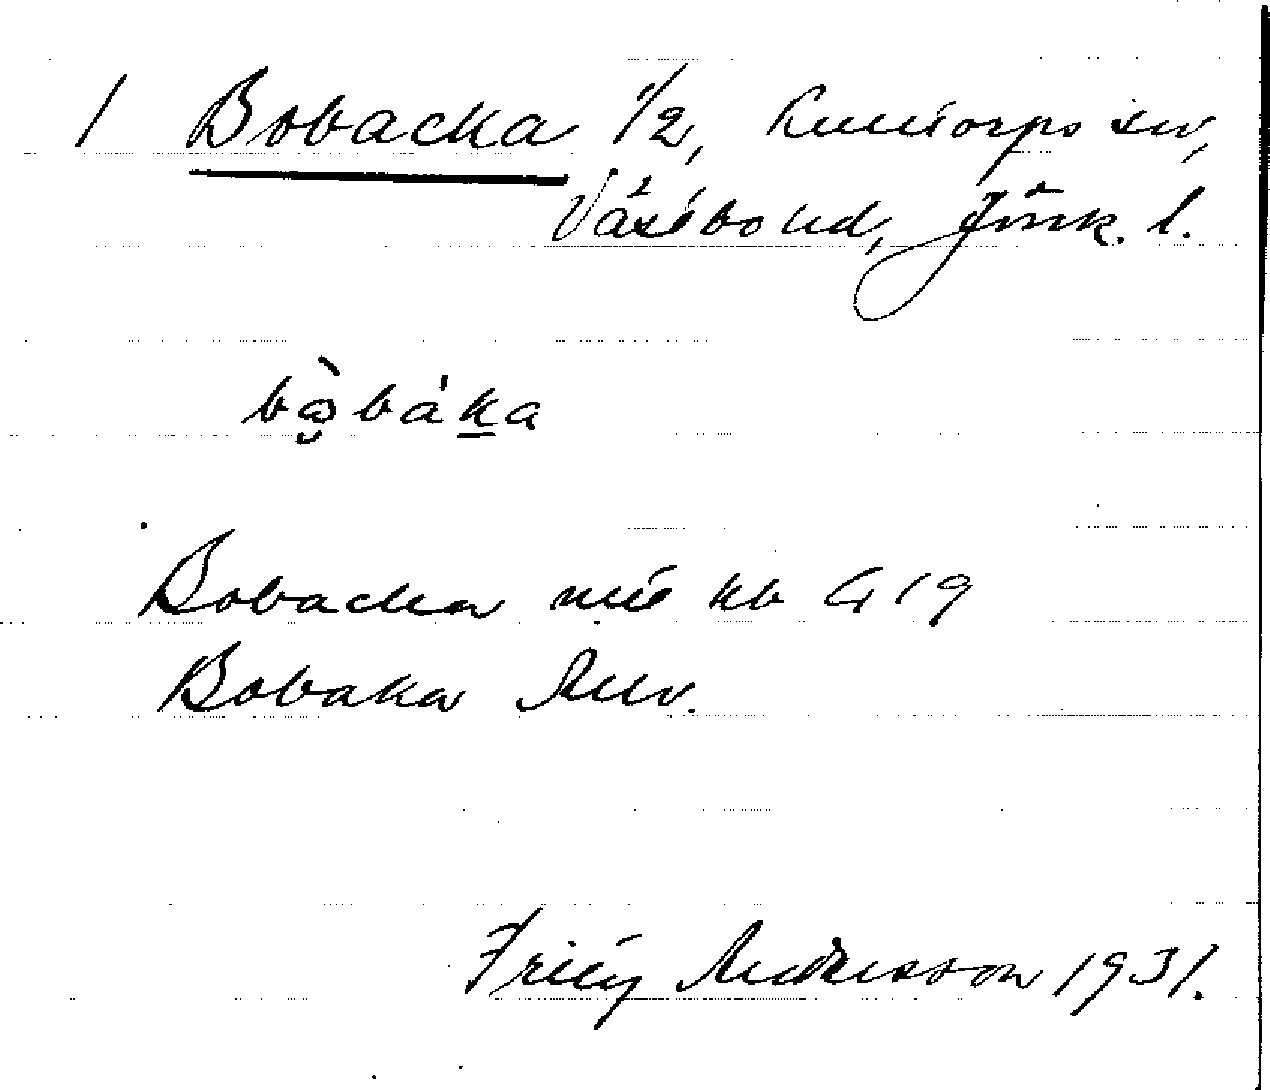 1 Bobacka 1/2, Kulltorps sn,
Västbo hd, Jönk. l.
bὼ̯bák̲a
Bobacka kb G 19
Bobaka
Fritz Andersson 1931.